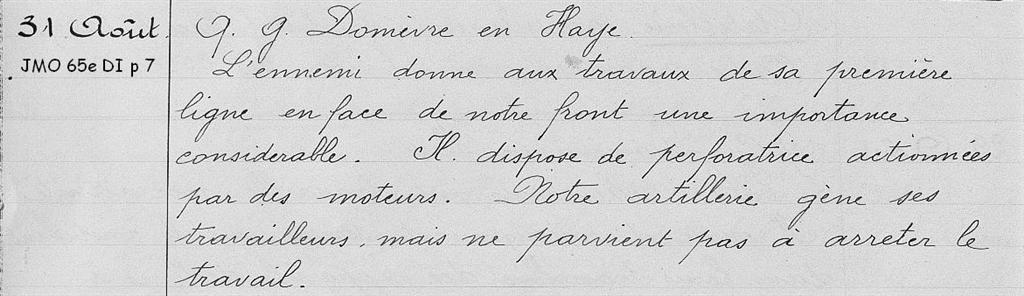 31 Août.
JMO 65e DI p 7
Q. G. Domèvre en Haye.
L'ennemi donne aux travaux de sa première
ligne en face de notre front une importance
considerable. Il dispose de perforatrice actionnées
par des moteurs. Notre artillerie gène ses
travailleurs, mais ne parvient pas à arreter le
travail.